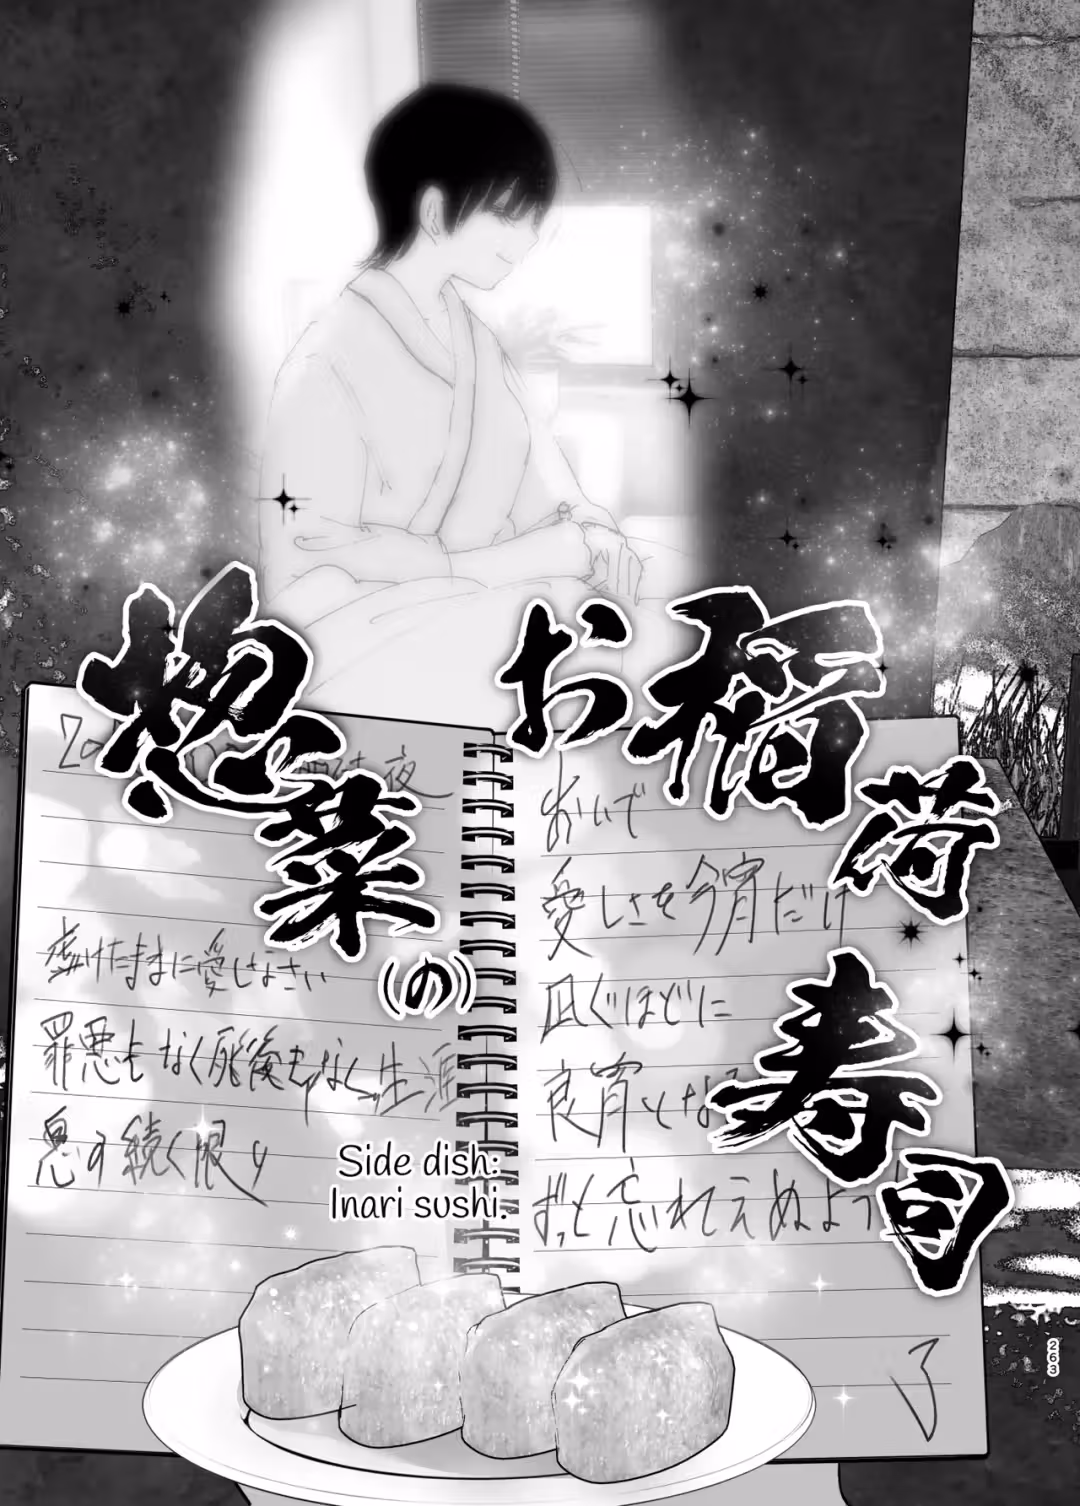 惣菜
(の)
お稲荷
寿司
Side dish:
Inari sushi.
夜
虚けたままに愛しなさい
罪悪もなく死後もなく生涯
息の続く限り
おいで
愛しさを今宵だけ
凪ぐほどに
良宵とな
ずっと忘れてえぬよう
了
263